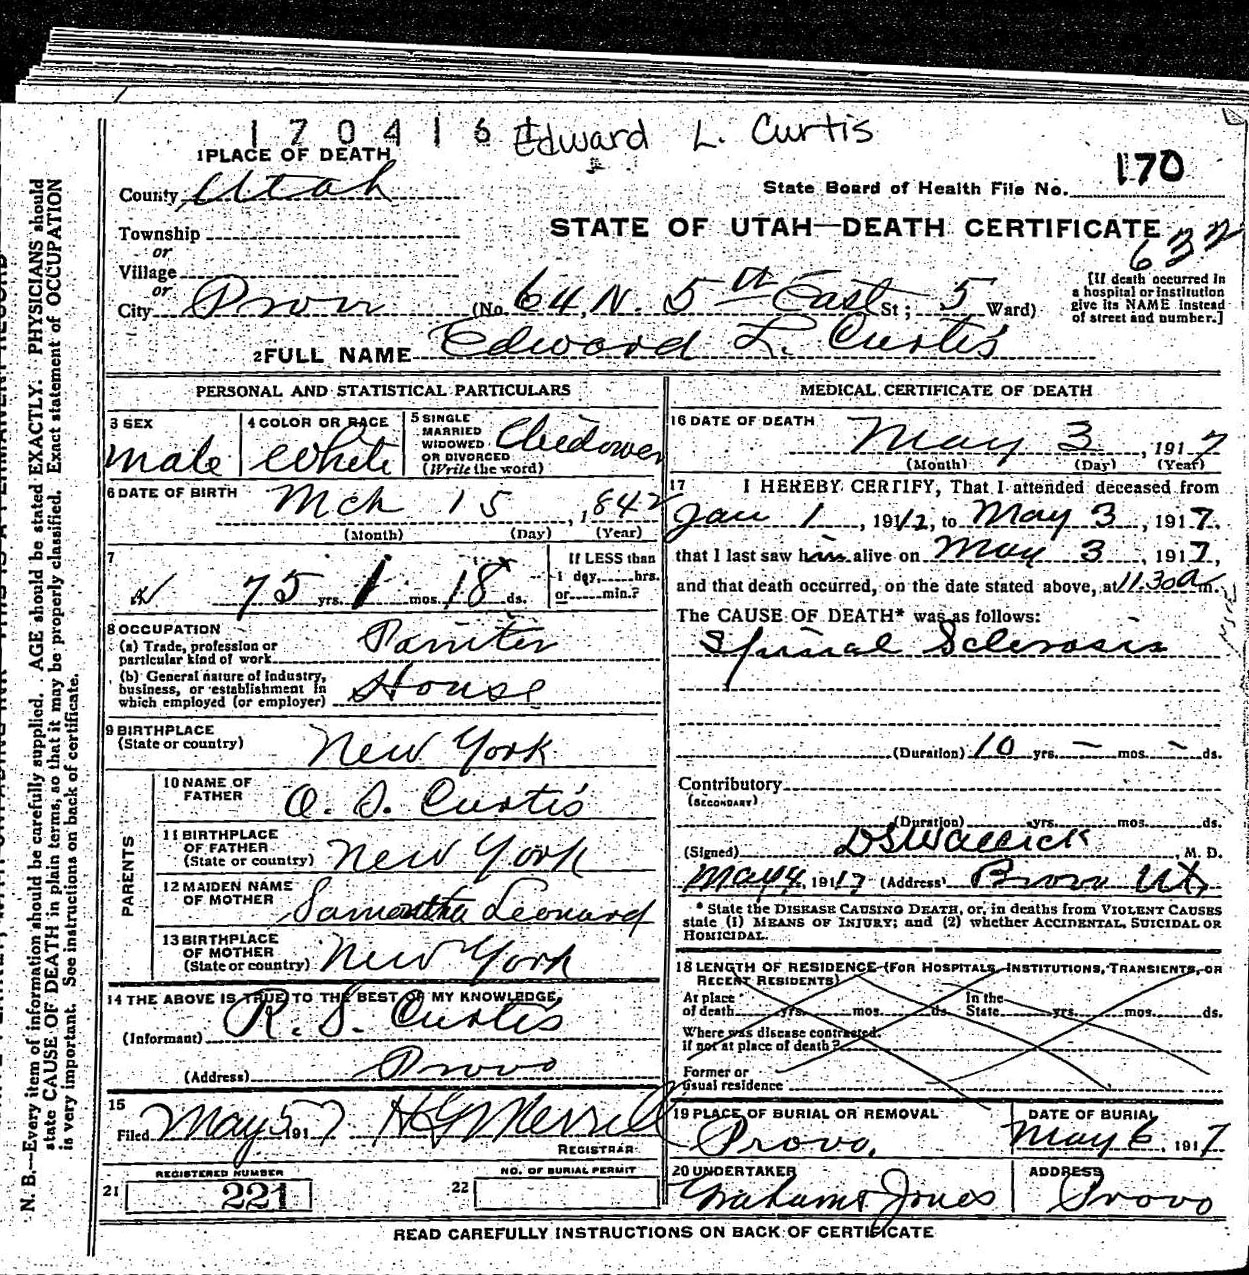 170416 Edward L. Curtis
1 PLACE OF DEATH
County Utah
State Board of Health File No. 170
Township
STATE OF UTAH—DEATH CERTIFICATE
632
or
Village
or
City Provo (No 64, N. 5th East St; 5 Ward)
[If death occurred in
a hospital or institution
give its NAME instead
of street and number.]
2 FULL NAME Edward L. Curtis
PERSONAL AND STATISTICAL PARTICULARS
3 SEX
male
4 COLOR OR RACE
White
5 SINGLE
MARRIED
WIDOWED
OR DIVORCED
(Write the word)
Widower
6 DATE OF BIRTH
Mch 15, 1842
(Month) (Day) (Year)
7
75 yrs. 1 mos. 18 ds.
If LESS than
1 day, hrs.
or min.?
8 OCCUPATION
(a) Trade, profession or
particular kind of work Painter
(b) General nature of industry,
business, or establishment in
which employed (or employer) House
9 BIRTHPLACE
(State or country) New York
PARENTS
10 NAME OF
FATHER O. S. Curtis
11 BIRTHPLACE
OF FATHER
(State or country) New York
12 MAIDEN NAME
OF MOTHER Samantha Leonard
13 BIRTHPLACE
OF MOTHER
(State or country) New York
14 THE ABOVE IS TRUE TO THE BEST OF MY KNOWLEDGE,
(Informant) R. S. Curtis
(Address) Provo
15
Filed May 5, 1917 H G Merrill
REGISTRAR
REGISTERED NUMBER
21 221
NO. OF BURIAL PERMIT
22
MEDICAL CERTIFICATE OF DEATH
16 DATE OF DEATH May 3, 1917
(Month) (Day) (Year)
17 I HEREBY CERTIFY, That I attended deceased from
Jan 1, 1912, to May 3, 1917.
that I last saw him alive on May 3, 1917,
and that death occurred, on the date stated above, at 11.30 a m.
The CAUSE OF DEATH* was as follows:
Spinal Sclerosis
(Duration) 10 yrs. — mos. — ds.
Contributory
(SECONDARY)
(Duration) yrs. mos. ds.
(Signed) , M. D.
May 4, 1917 (Address) Provo Ut.
* State the DISEASE CAUSING DEATH, or, in deaths from VIOLENT CAUSES
state (1) MEANS OF INJURY; and (2) whether ACCIDENTAL, SUICIDAL OR
HOMICIDAL.
18 LENGTH OF RESIDENCE (FOR HOSPITALS, INSTITUTIONS, TRANSIENTS, OR
RECENT RESIDENTS)
At place
of death yrs. mos. ds. In the
State yrs. mos. ds.
Where was disease contracted.
if not at place of death?
Former or
usual residence
19 PLACE OF BURIAL OR REMOVAL
Provo.
DATE OF BURIAL
May 6, 1917
20 UNDERTAKER
Graham & Jones
ADDRESS
Provo
READ CAREFULLY INSTRUCTIONS ON BACK OF CERTIFICATE
N. B.—Every item of information should be carefully supplied. AGE should be stated EXACTLY. PHYSICIANS should
state CAUSE OF DEATH in plain terms, so that it may be properly classified. Exact statement of OCCUPATION
is very important. See instructions on back of certificate.